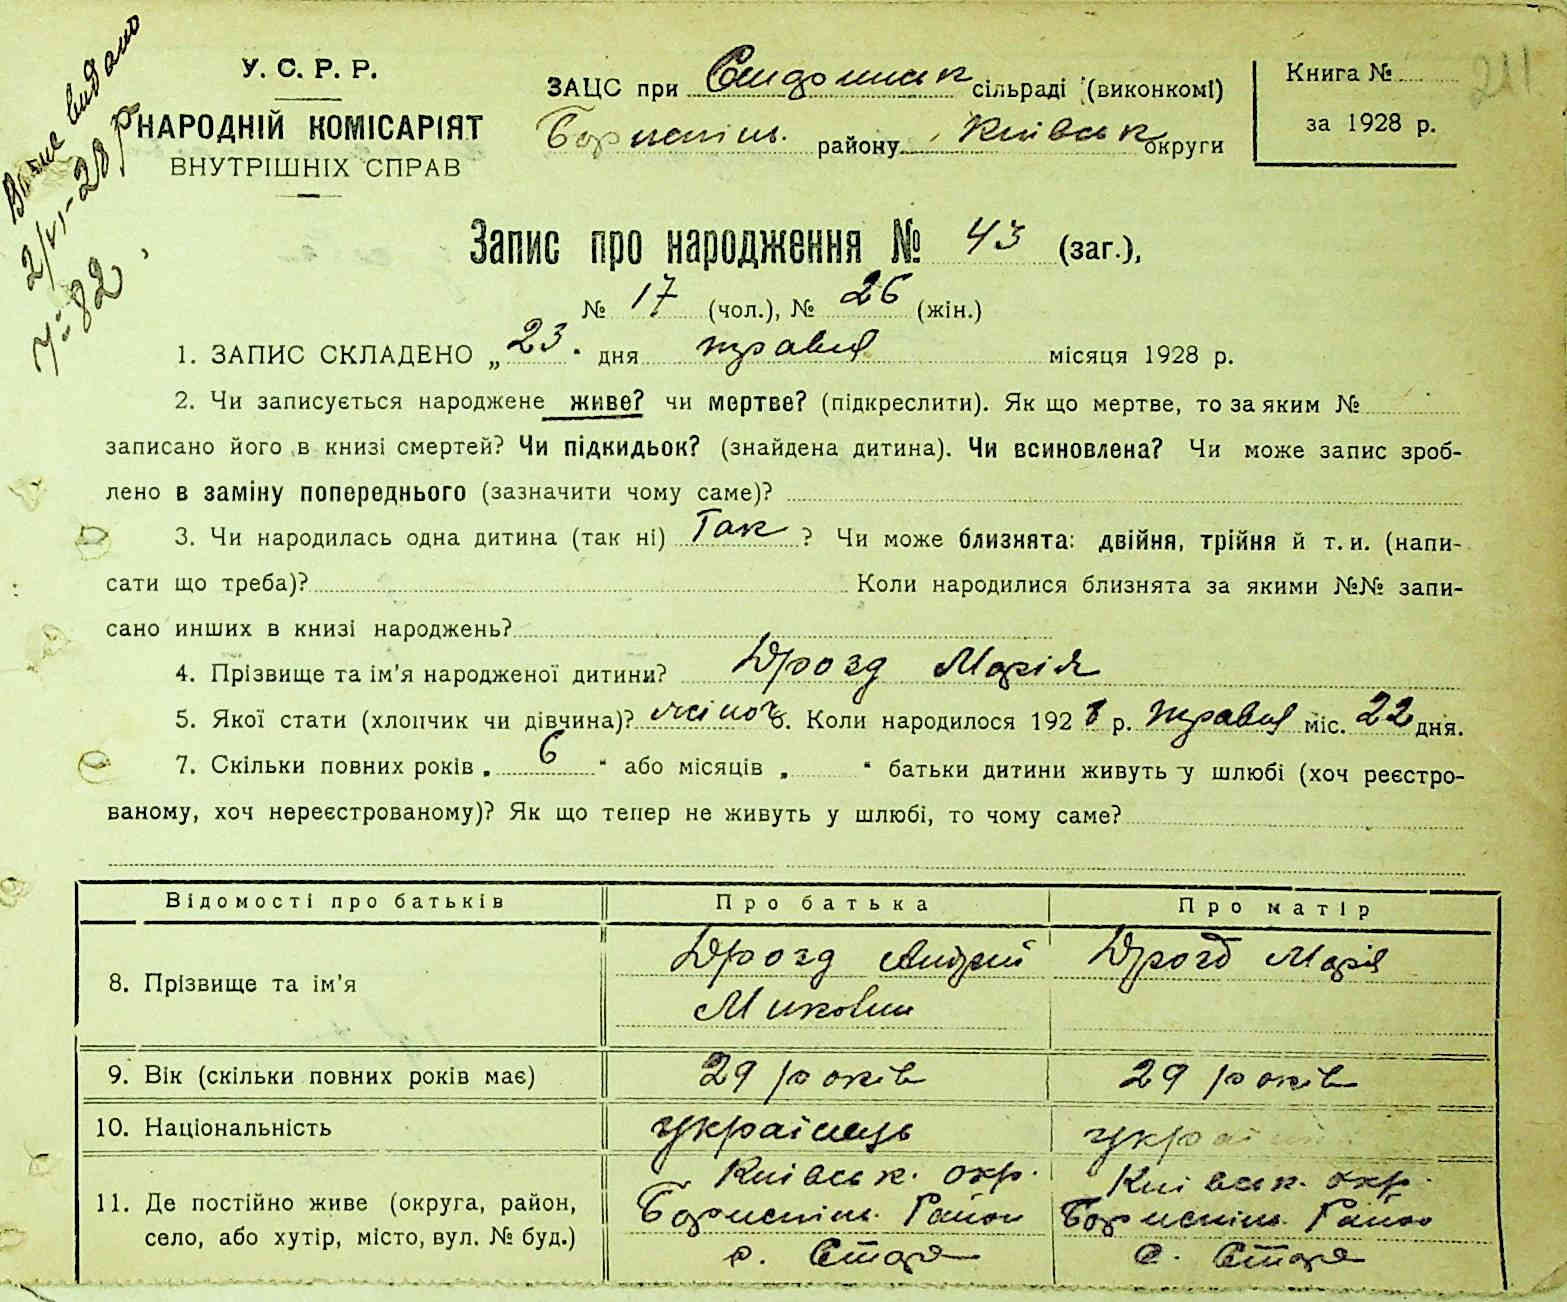 Витяг видано
2/VI-28 р
Ч: 82
У. С. Р. Р.
НАРОДНІЙ КОМІСАРІЯТ
ВНУТРІШНІХ СПРАВ
ЗАЦС при сільраді (виконкомі)
Бориспіль. району Київськ округи
Книга №
за 1928 р.
211
Запис про народження № 43 (заг.),
№ 17 (чол.), № 26 (жін.)
1. ЗАПИС СКЛАДЕНО „23" дня травня місяця 1928 р.
2. Чи записується народжене живе? чи мертве? (підкреслити). Як що мертве, то за яким №
записано його в книзі смертей? Чи підкидьок? (знайдена дитина). Чи всиновлена? Чи може запис зроб-
лено в заміну попереднього (зазначити чому саме)?
3. Чи народилась одна дитина (так ні) Так ? Чи може близнята: двійня, трійня й т. и. (напи-
сати що треба)? Коли народилися близнята за якими №№ запи-
сано инших в книзі народжень?
4. Прізвище та ім'я народженої дитини? Дрозд Марія
5. Якої стати (хлопчик чи дівчина)? жіноч. Коли народилося 1928 р. травня міс. 22 дня.
7. Скільки повних років „ 6 " або місяців „ " батьки дитини живуть у шлюбі (хоч реєстро-
ваному, хоч нереєстрованому)? Як що тепер не живуть у шлюбі, то чому саме?
Відомості про батьків Про батька Про матір
8. Прізвище та ім'я Дрозд Андрій Дрозд Марія
9. Вік (скільки повних років має) 29 років 29 років
10. Національність українець україн
11. Де постійно живе (округа, район,
село, або хутір, місто, вул. № буд.)
Київськ. окр. Київськ. окр.
Бориспіль. Район Бориспіль. Район
с. Старе с. Старе